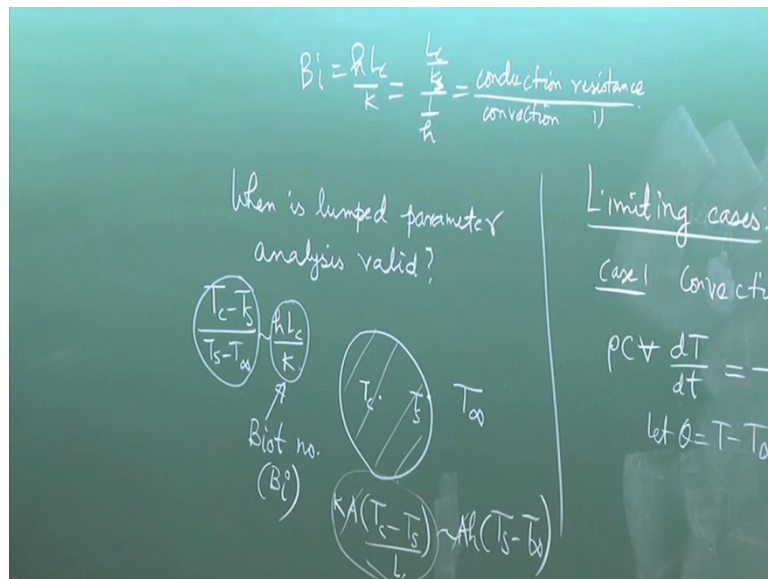 Bi = hLc/K = (Lc/Ks)/(1/h) = conduction resistance/convection 〃
When is lumped parameter
analysis valid?
(Tc-Ts)/(Ts-T∞) ~ hLc/K
Biot no.
(Bi)
Tc Ts T∞
KA(Tc-Ts)/L ~ Ah(Ts-T∞)
Limiting cases:
Case 1
ρC∀ dT/dt = -
let θ = T-T∞